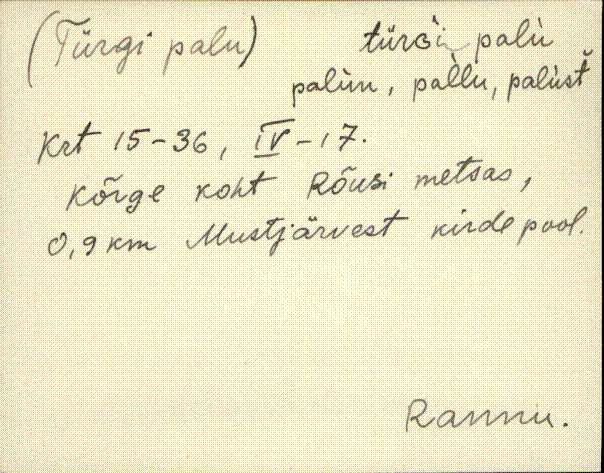 (Türgi palu) türɢi palu
palun, pallu, palust
Krt 15-36, IV-17.
Kõrge koht Rõusi metsas,
0,9 km Mustjärvest kirde pool.
Rannu.